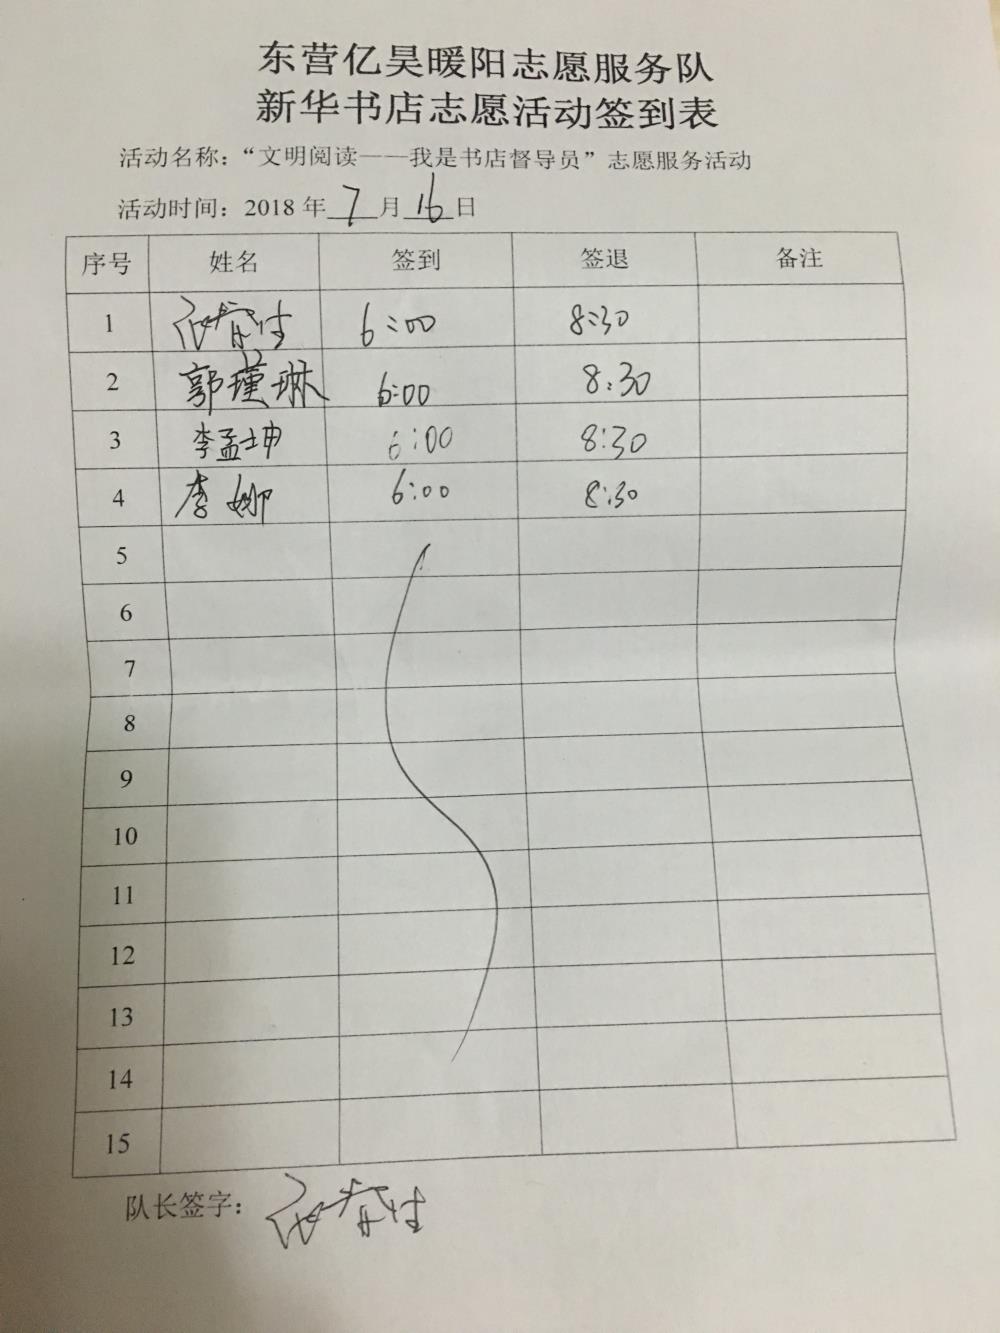 东营亿昊暖阳志愿服务队
新华书店志愿活动签到表
活动名称：“文明阅读——我是书店督导员”志愿服务活动
活动时间：2018 年 7 月 16 日
序号 姓名 签到 签退 备注
1 6:00 8:30
2 郭瑾琳 6:00 8:30
3 李孟坤 6:00 8:30
4 李娜 6:00 8:30
5
6
7
8
9
10
11
12
13
14
15
队长签字：